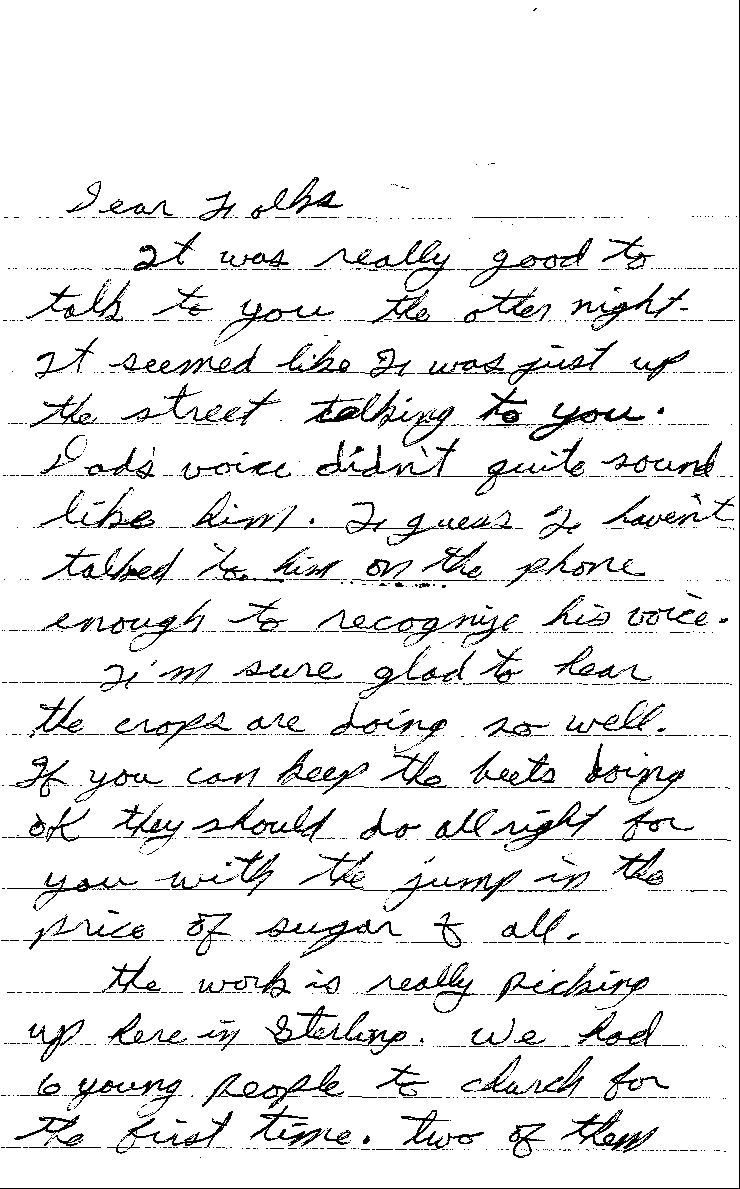 Dear Folks
It was really good to
talk to you the other night.
It seemed like I was just up
the street talking to you.
Dad's voice didn't quite sound
like him. I guess I haven't
talked to him on the phone
enough to recognize his voice.
I'm sure glad to hear
the crops are doing so well.
If you can keep the beets doing
OK they should do all right for
you with the jump in the
price of sugar & all.
The work is really picking
up here in Sterling. We had
6 young people to church for
the first time. Two of them